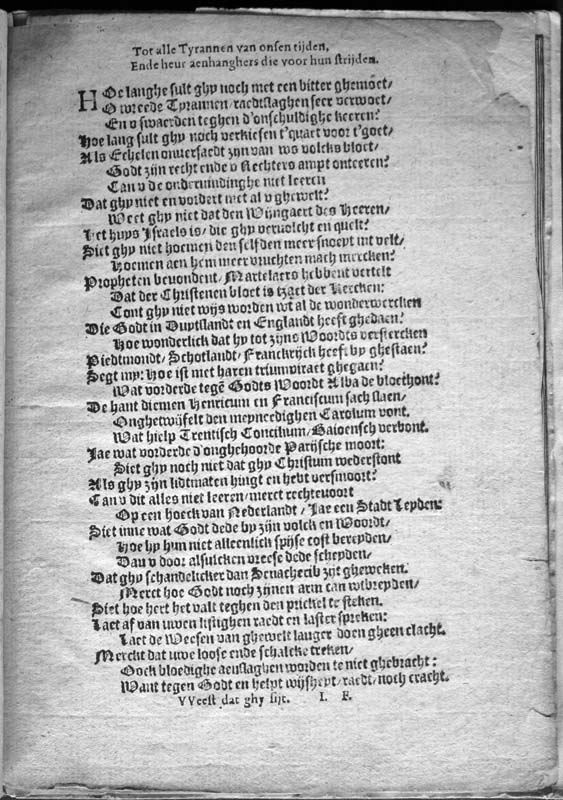 Tot alle Tyrannen van onsen tijden,
Ende heur aenhanghers die voor hun strijden.
HOe langhe sult ghy noch met een bitter ghemoet/
O wreede Tyrannen/ raedtslaghen seer verwoet/
En v swaerden teghen d'onschuldighe keeren?
Hoe lang sult ghy noch verkiesen t'quaet voor t'goet/
Als Echelen onversaedt zijn van ws volcks bloet/
Godt zijn recht ende v Rechters ampt onteeren?
Can v de ondervindinghe niet leeren
Dat ghy niet en vordert met al v ghewelt?
Weet ghy niet dat den Wijngaert des Heeren/
Het huys Israels is/ die ghy vervolcht en quelt?
Siet ghy niet hoemen den selfden meer snoeyt int velt/
Hoemen aen hem meer vruchten mach mercken?
Propheten bevondent/ Martelaers hebbent vertelt
Dat der Christenen bloet is tzaet der Kercken:
Cont ghy niet wijs worden wt al de wonderwercken
Die Godt in Duytslandt en Englandt heeft ghedaen?
Hoe wonderlick dat hy tot zijns Woordts verstercken
Piedtmondt/ Schotlandt/ Franckrijck heeft by ghestaen?
Segt my: hoe ist met haren triumviraet ghegaen?
Wat vorderde tegē Godts Woordt Alba de bloethont?
De hant diemen Henricum en Franciscum sach slaen/
Onghetwijfelt den meyneedighen Carolum vont.
Wat hielp Trentisch Concilium/ Baioensch verbont.
Jae wat vorderde d'onghehoorde Parijsche moort:
Siet ghy noch niet dat ghy Christum wederstont
Als ghy zijn lidtmaten hingt en hebt versmoort?
Can v dit alles niet leeren/ merct rechtevoort
Op een hoeck van Nederlandt/ Jae een Stadt Leyden:
Siet inne wat Godt dede by zijn volck en Woordt/
Hoe hy hun niet alleenlick spijse cost bereyden/
Dan v door alsulcken vreese dede scheyden/
Dat ghy schandelicker dan Senacherib zijt gheweken.
Merct hoe Godt noch zijnen arm can wtbreyden/
Siet hoe heet het valt teghen den prickel te steken.
Laet af van uwen listighen raedt en laster spreken:
Laet de Weesen van ghewelt langer doen gheen clacht.
Merckt dat uwe loose ende schalcke treken/
Oock bloedighe aenslaghen worden te niet ghebracht:
Want tegen Godt en helpt wijsheyt/ raedt/ noch cracht.
VVeest dat ghy sijt. I. F.